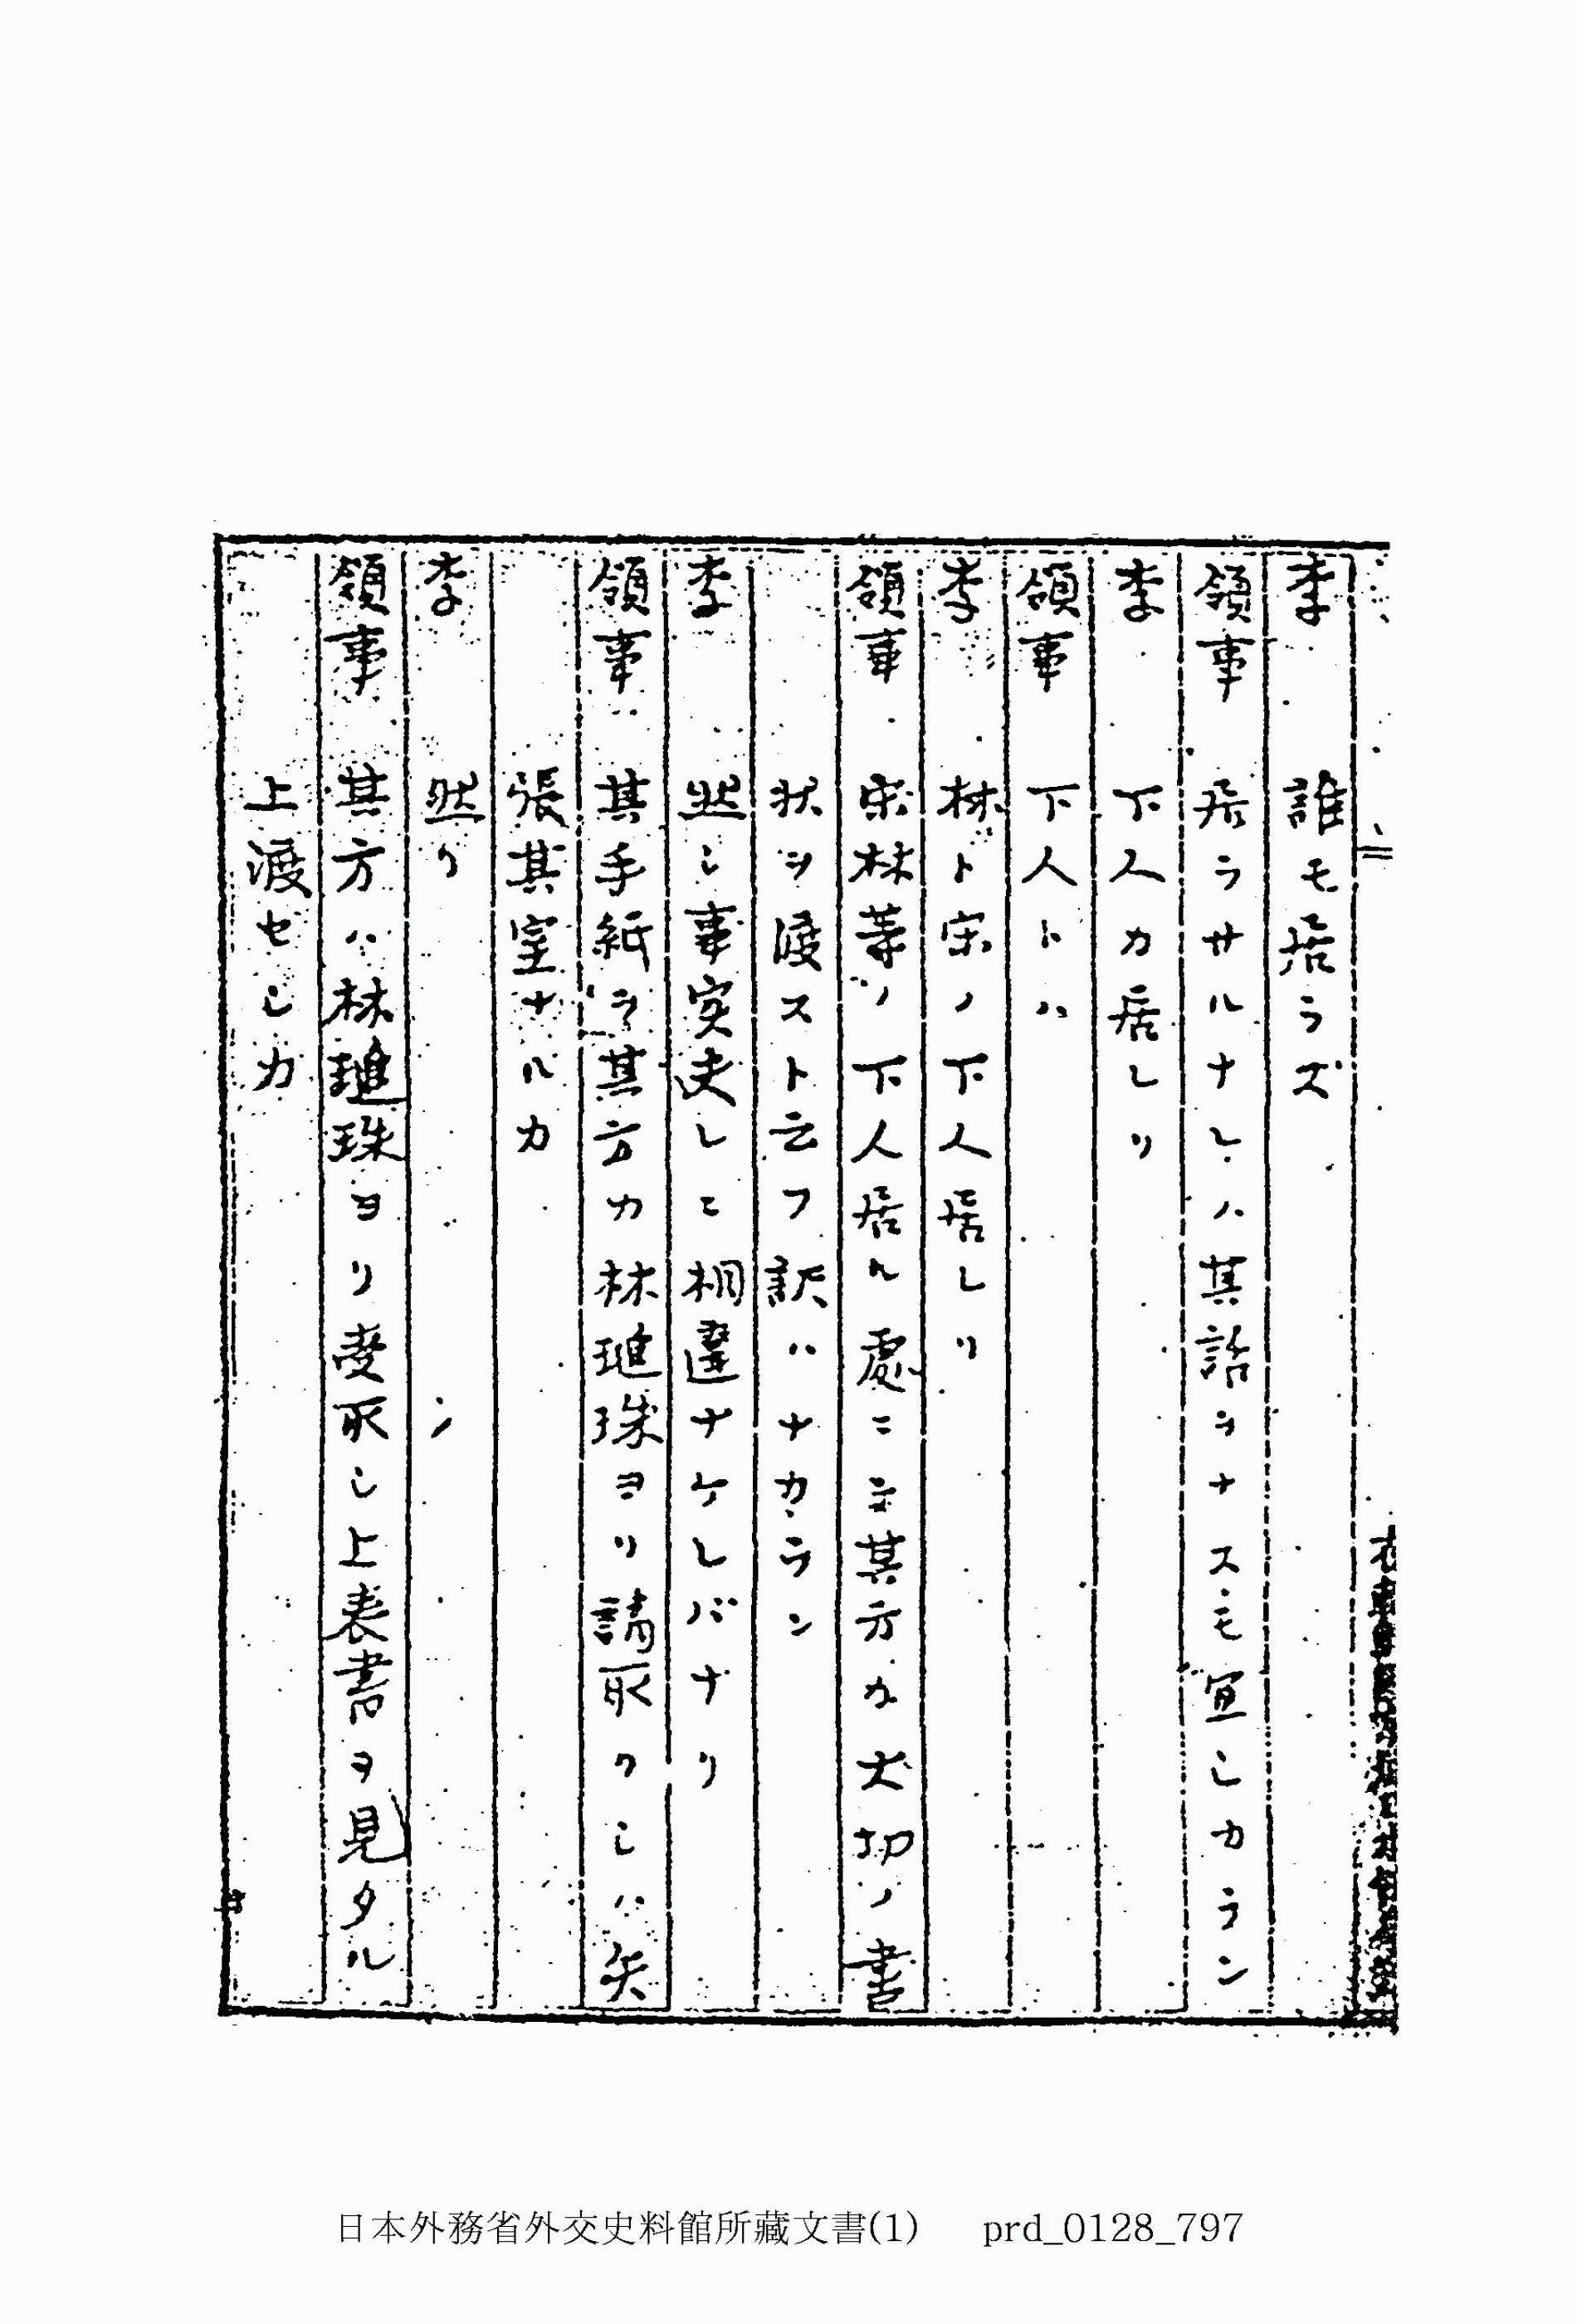 李　誰モ居ラズ
領事　居ラサルナレハ其話ヲナスモ宜シカラン
李　下人カ居レリ
領事　下人トハ
李　林ト宋ノ下人居レリ
領事　宋林等ノ下人居ル處ニテ其方カ大切ノ書
状ヲ渡スト云フ訳ハナカラン
李　然シ事実夫レニ相違ナケレバナリ
領事　其手紙ヲ其方カ林璡珠ヨリ請取クシハ矢
張其室ナルカ
李　然リ
領事　其方ハ林璡珠ヨリ受取シ上表書ヲ見タル
上渡セシカ
日本外務省外交史料館所藏文書(1)　prd_0128_797